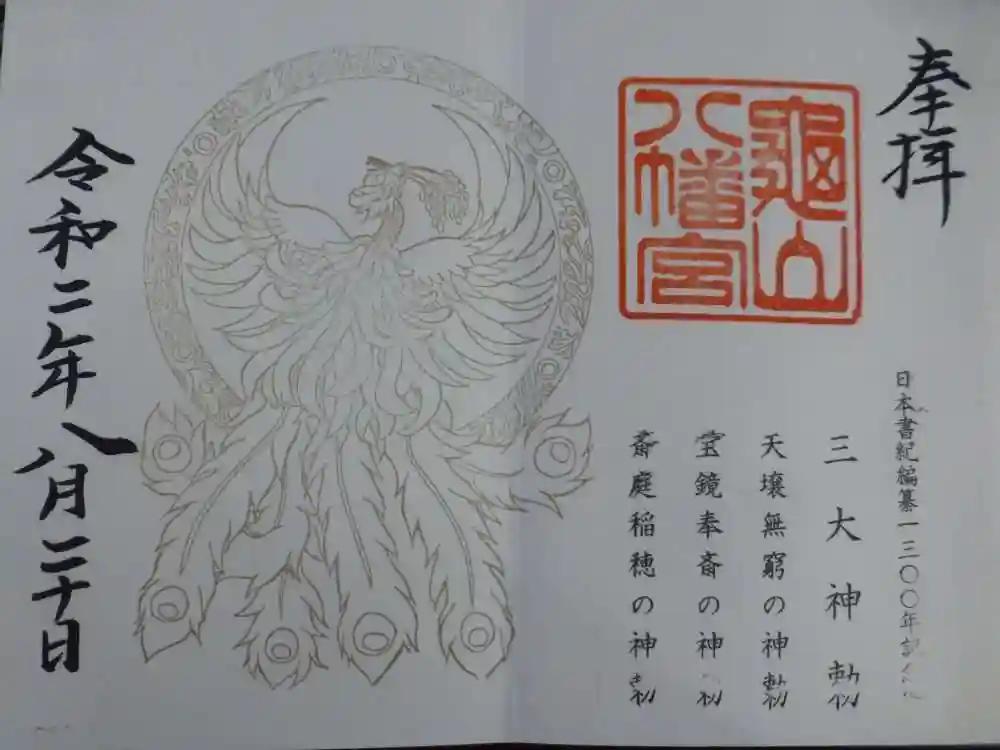 奉拝
亀山
八幡宮
日本書紀編纂一三〇〇年記念
三大神勅
天壌無窮の神勅
宝鏡奉斎の神勅
斎庭稲穂の神勅
令和二年八月二十日